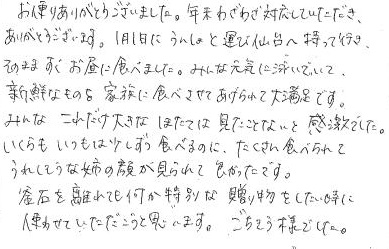 お便りありがとうございました。年末わざわざ対応していただき、
ありがとうございます。1月1日にうんしょと運び仙台へ持って行き、
そのまますぐお昼に食べました。みんな元気に泳いでいて、
新鮮なものを家族に食べさせてあげられて大満足です。
みんな これだけ大きな ほたては 見たことないと 感激でした。
いくらも いつもは少しずつ 食べるのに、たくさん食べられて
うれしそうな姉の顔が見られて 良かったです。
釜石を離れても何か特別な 贈り物をしたい時に
使わせていただこうと思います。 ごちそう様でした。